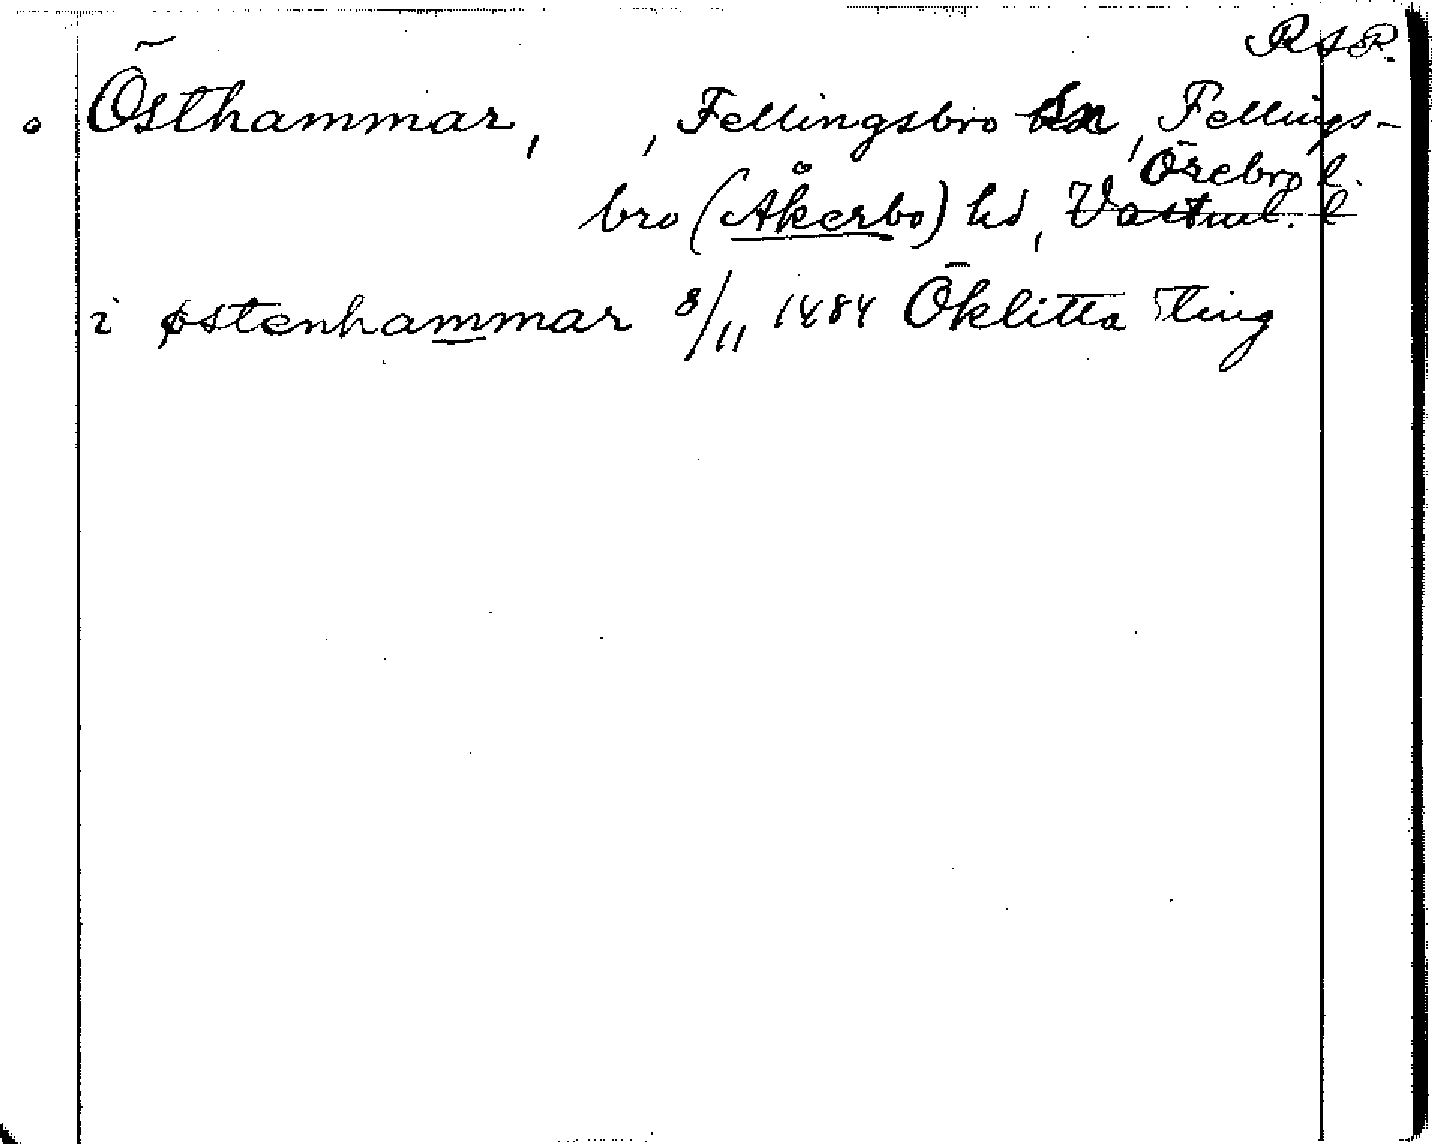 RAP.
Östhammar, , Fellingsbro sn, Fellings-
Örebro l.
bro (Åkerbo) hd, Västml. l
i østenhammar 8/11 1484 Öklitta Ting